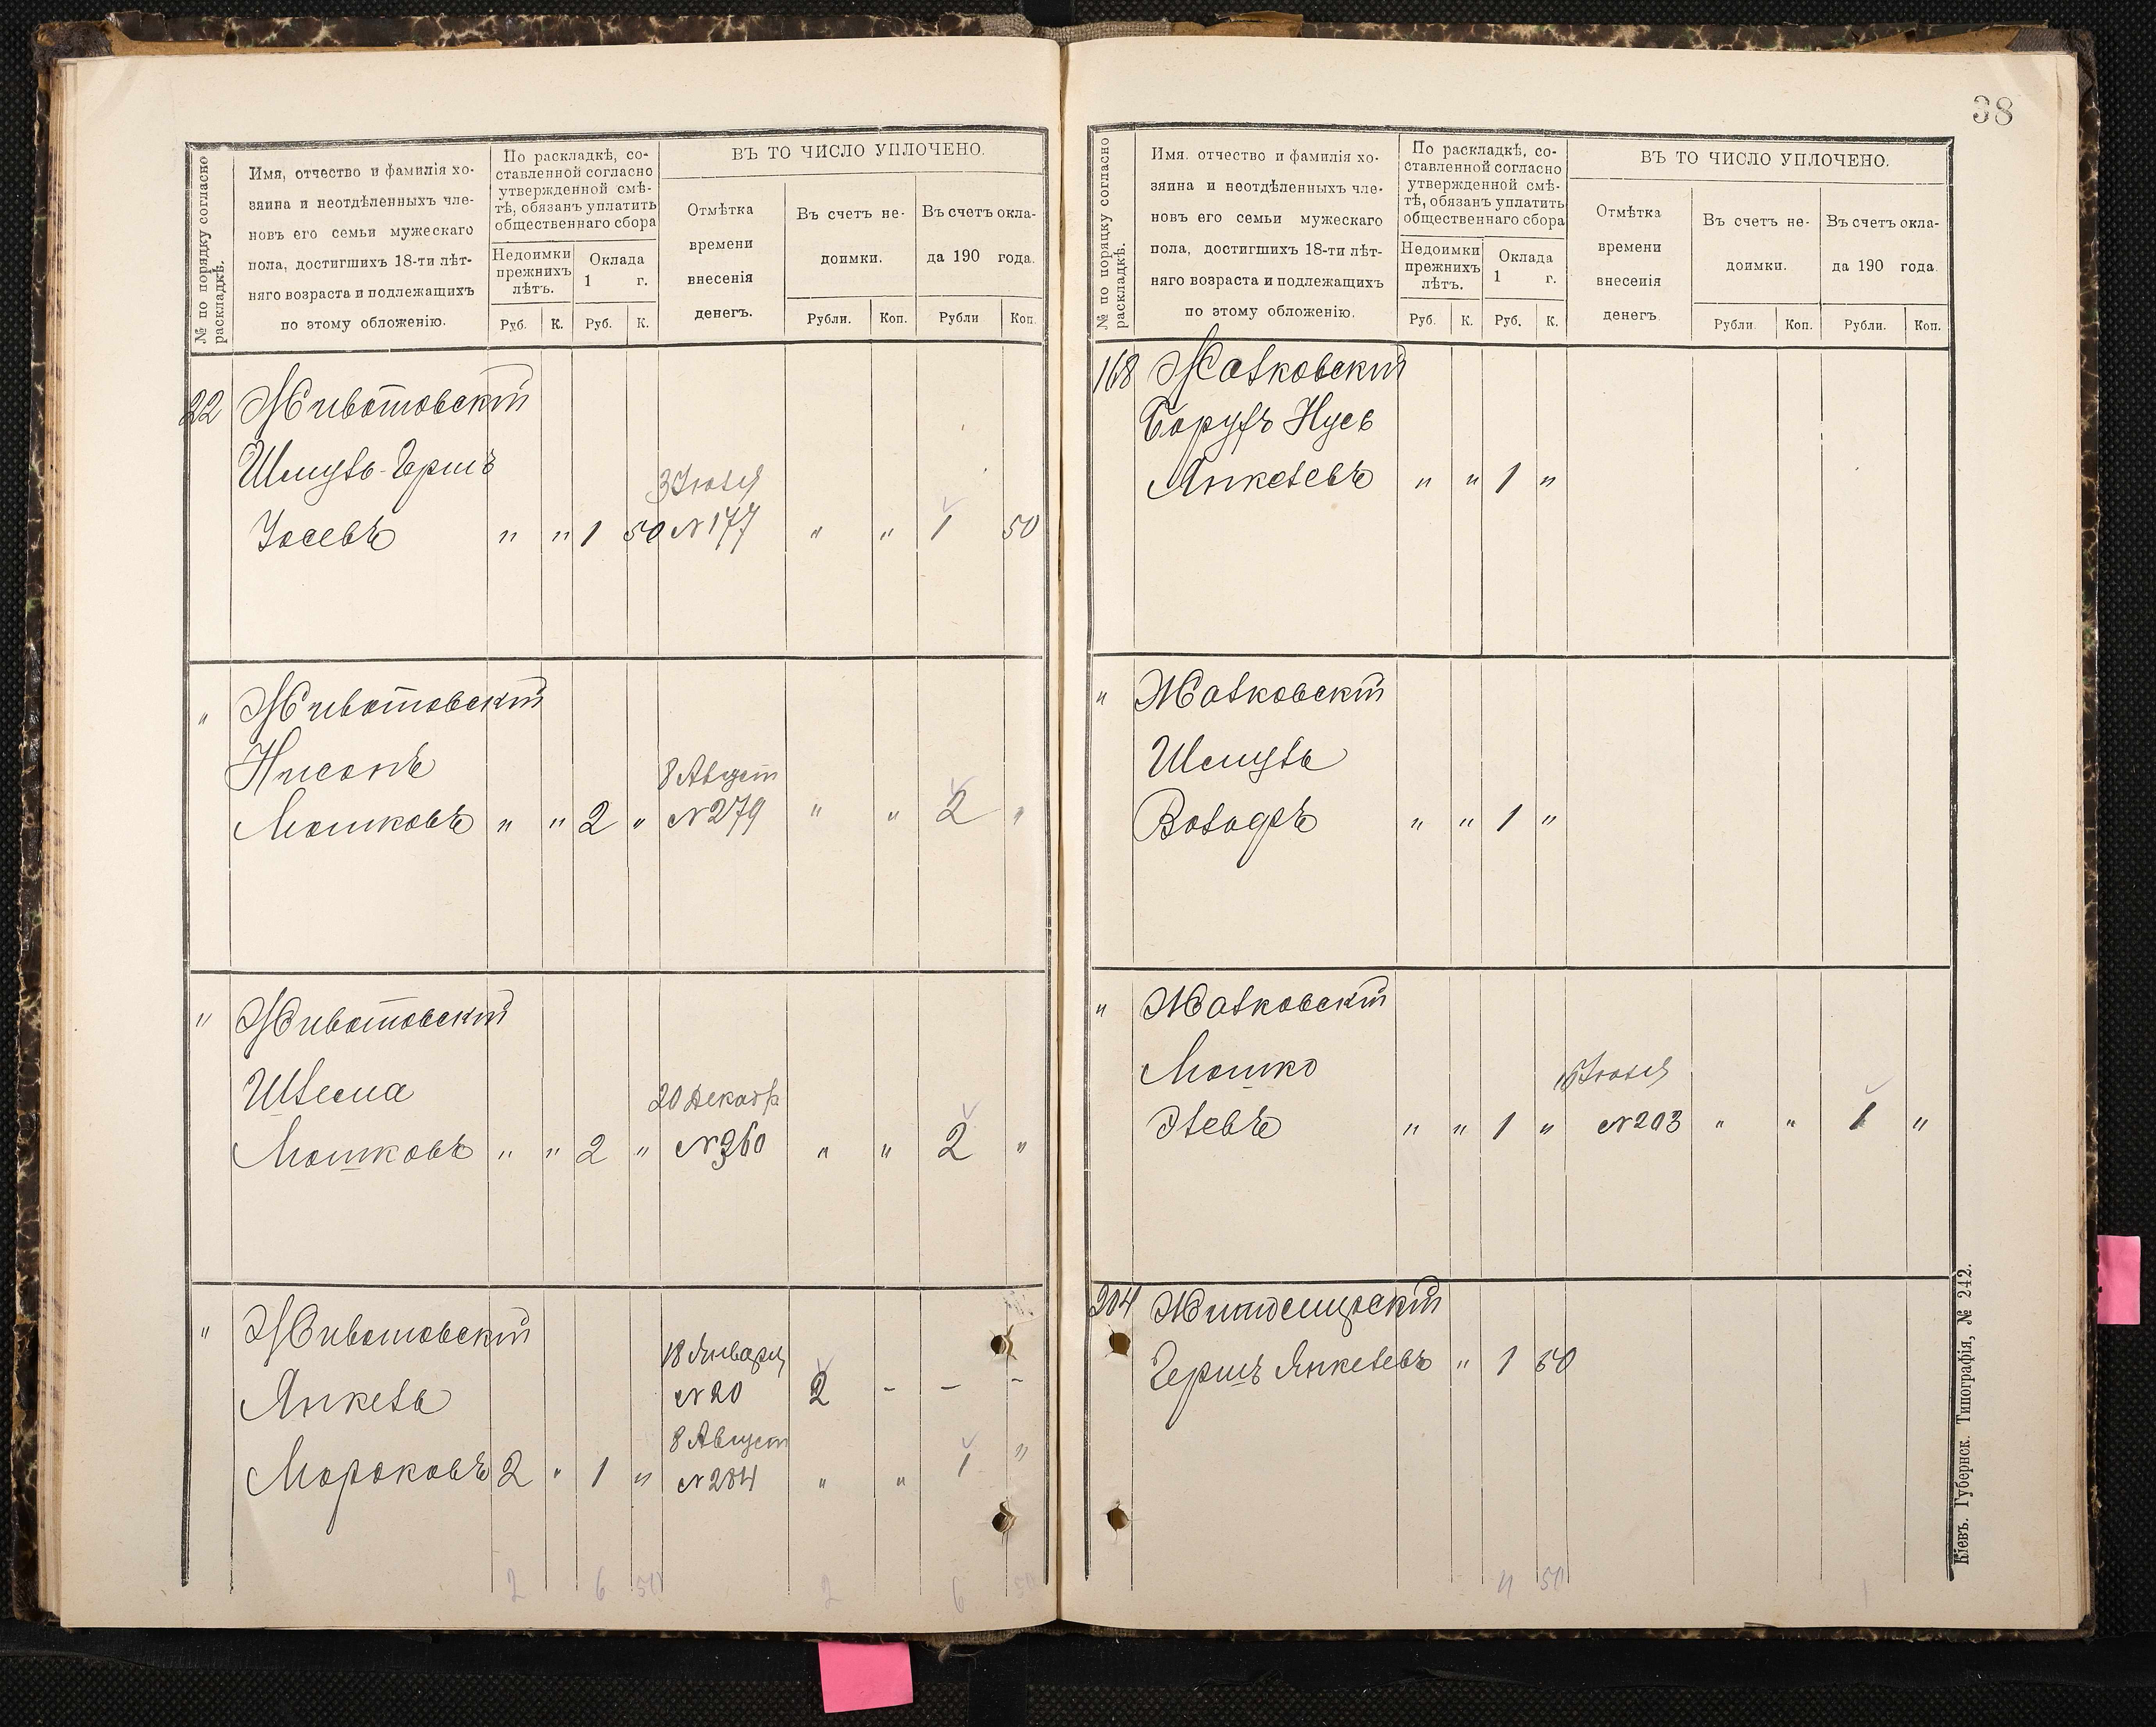 № по порядку согласно раскладкѣ.
Имя, отчество и фамилія хо-
зяина и неотдѣленныхъ чле-
новъ его семьи мужескаго
пола, достигшихъ 18-ти лѣт-
няго возраста и подлежащихъ
по этому обложенію.
По раскладкѣ, со-
ставленной согласно
утвержденной смѣ-
тѣ, обязанъ уплатить
общественнаго сбора
Недоимки
прежнихъ
лѣтъ.
Оклада
1 г.
Руб. К. Руб. К.
ВЪ ТО ЧИСЛО УПЛОЧЕНО.
Отмѣтка
времени
внесенія
денегъ.
Въ счетъ не-
доимки.
Въ счетъ окла-
да 190 года.
Рубли. Коп. Рубли Коп.
22 Животовскій
Шмуль-Герш
Іосевъ " " 1 50 3 Іюля
№ 177 " " 1 50
" Животовскій
Нисонъ
Мошковъ " " 2 " 8 Август
№ 279 " " 2 "
" Животовскій
Шлема
Мошковъ " " 2 " 20 Декабр
№ 360 " " 2 "
" Животовскій
Янкель
18 Января
№ 20 2 - - -
Мороковъ 2 " 1 " 8 Август
№ 284 " " 1 "
2 6 50 2 6 50
38
№ по порядку согласно раскладкѣ.
Имя. отчество и фамилія хо-
зяина и неотдѣленныхъ чле-
новъ его семьи мужескаго
пола, достигшихъ 18-ти лѣт-
няго возраста и подлежащихъ
по этому обложенію.
По раскладкѣ, со-
ставленной согласно
утвержденной смѣ-
тѣ, обязанъ уплатить
общественнаго сбора
Недоимки
прежнихъ
лѣтъ.
Оклада
1 г.
Руб. К. Руб. К.
ВЪ ТО ЧИСЛО УПЛОЧЕНО.
Отмѣтка
времени
внесенія
денегъ.
Въ счетъ не-
доимки.
Въ счетъ окла-
да 190 года.
Рубли. Коп. Рубли. Коп.
168 Жалковскій
Борухъ Нусь
Янкелевъ " " 1 "
" Жалковскій
Шмуль
" " 1 "
" Жалковскій
Мошко
Элевъ " " 1 " Іюля
№ 203 " " 1 "
204 Житомирскій
Гершъ Янкелевъ " 1 50
4 50 1
Кіевъ. Губернск. Типографія, № 242.